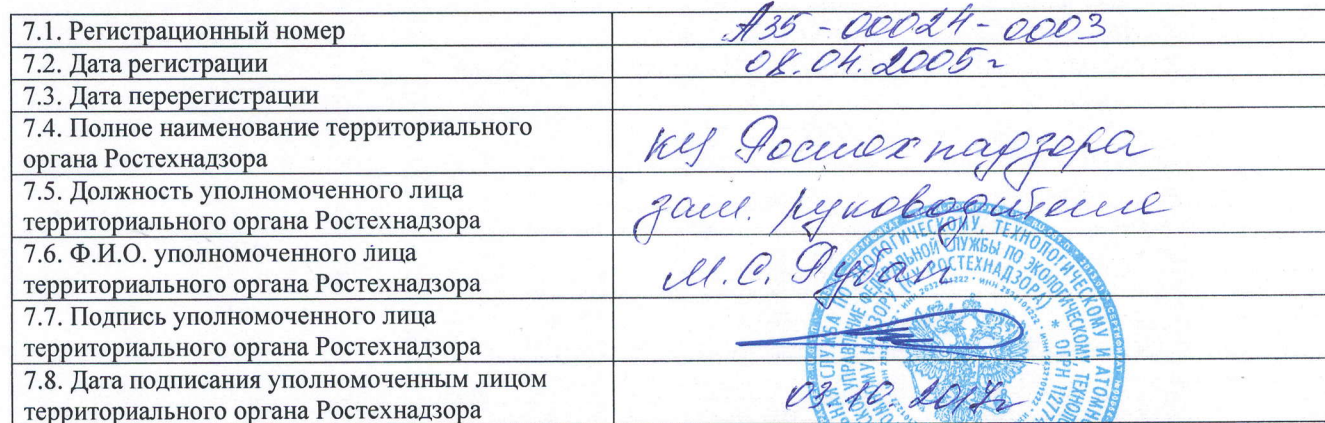 7.1. Регистрационный номер А35-00024-0003
7.2. Дата регистрации 08.04.2005г
7.3. Дата перерегистрации
7.4. Полное наименование территориального
органа Ростехнадзора КУ Ростехнадзора
7.5. Должность уполномоченного лица
территориального органа Ростехнадзора зам. руководителя
7.6. Ф.И.О. уполномоченного лица
территориального органа Ростехнадзора М.С. Рубан
7.7. Подпись уполномоченного лица
территориального органа Ростехнадзора
7.8. Дата подписания уполномоченным лицом
территориального органа Ростехнадзора 03.10.2017г
ТЕХНОЛОГИЧЕСКОМУ И АТОМНО
ФЕДЕРАЛЬНОЙ СЛУЖБЫ ПО ЭКОЛОГИЧЕСКОМУ, ТЕХНОЛО
РОСТЕХНАДЗОРА) * ОГРН